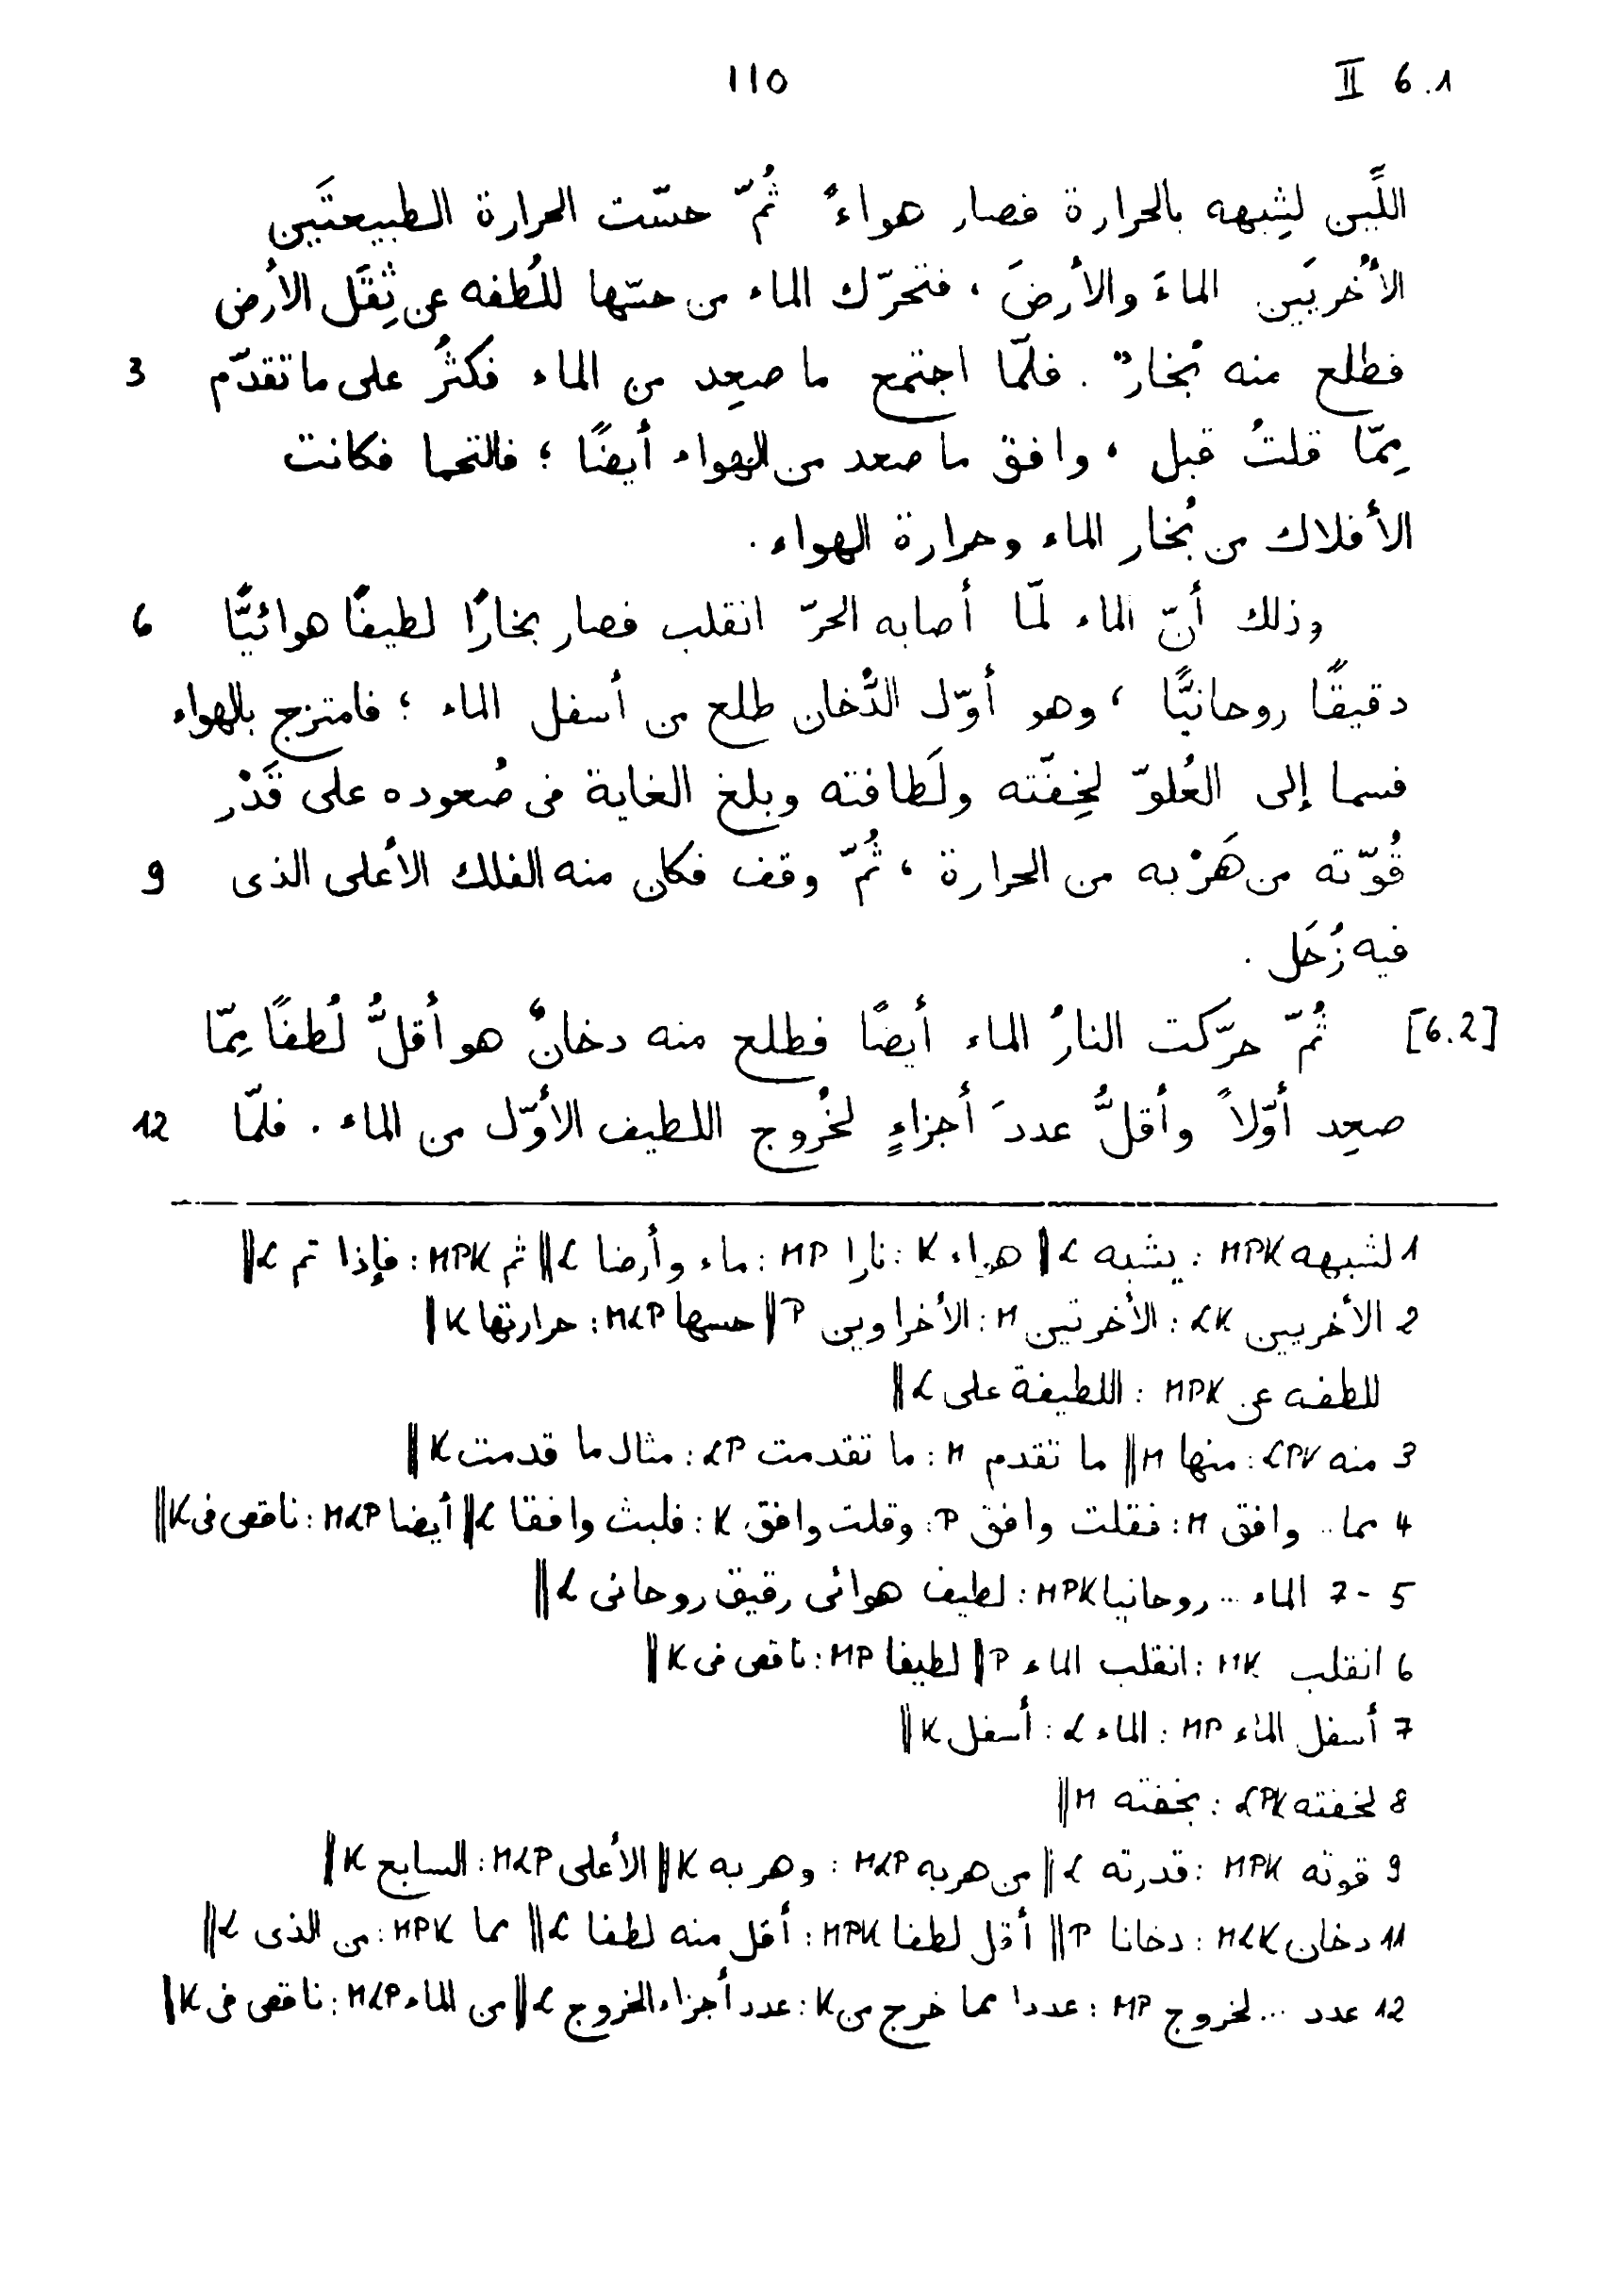 110 II 6.1
اللَّيِّن لشِبهه بالحرارة فصار هواءً ثُمّ حسّت الحرارة الطبيعتَين
الأُخريَين الماءَ والأرضَ ، فتحرّك الماء من حسّها للُطفه عن ثِقَل الأرض
فطلع منه بُخارٌ . فلمّا اجتمع ما صعِد من الماء فكثُر على ما تقدّم 3
مِمّا قلتُ قبل ، وافق ما صعد من الهواء أيضًا ؛ فالتحما فكانت
الأفلاك من بُخار الماء وحرارة الهواء .
وذلك أنّ الماء لمّا أصابه الحرّ انقلب فصار بخارًا لطيفًا هوائيًّا 6
دقيقًا روحانيًّا ، وهو أوّل الدُّخان طلع من أسفل الماء ؛ فامتزج بالهواء
فسما إلى العُلوّ لخِفّته ولَطافته وبلغ الغاية فى صُعوده على قَدْر
قُوّته من هَرْبه من الحرارة ، ثُمّ وقف فكان منه الفلك الأعلى الذى 9
فيه زُحَل .
[6.2] ثُمّ حرّكت النارُ الماء أيضًا فطلع منه دخانٌ هو أقلُّ لُطفًا مِمّا
صعِد أوّلاً وأقلُّ عددَ أجزاءٍ لخُروج اللطيف الأوّل من الماء . فلمّا 12
1 لشبهه MPK : يشبه L ‖ هواء K : نارا MP : ماء وأرضا L ‖ ثم MPK : فإذا تم L ‖
2 الأخريين LK : الأخرتين M : الأخراوين P ‖ حسها MLP : حرارتها K ‖
للطفه عن MPK : اللطيفة على L ‖
3 منه LPK : منها M ‖ ما تقدم M : ما تقدمت LP : مثال ما قدمت K ‖
4 مما .. وافق M : فقلت وافق P : وقلت وافق K : فلبث وافقا L ‖ أيضا MLP : ناقص فى K ‖
5 - 7 الماء ... روحانيا MPK : لطيف هوائى رقيق روحانى L ‖
6 انقلب MK : انقلب الماء P ‖ لطيفا MP : ناقص فى K ‖
7 أسفل الماء MP : الماء L : أسفل K ‖
8 لخفته LPK : بخفته M ‖
9 قوته MPK : قدرته L ‖ من هربه MLP : وهربه K ‖ الأعلى MLP : السابع K ‖
11 دخان MLK : دخانا P ‖ أقل لطفا MPK : أقل منه لطفا L ‖ مما MPK : من الذى L ‖
12 عدد ... لخروج MP : عددا مما خرج من K : عدد أجزاء الخروج L ‖ من الماء MLP : ناقص فى K ‖